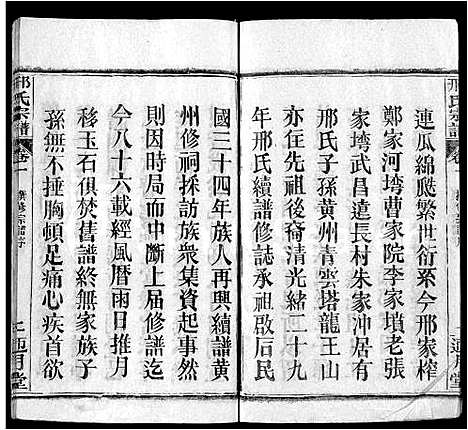 邢氏宗譜
連瓜綿瓞繁世衍系今邢家榨
鄭家河塆曹家院李家墳老張
家塆武昌遠長村朱家冲居有
邢氏子孫黄州青雲塔龍王山
亦在先祖後裔清光緒二十九
年邢氏續譜修誌承祖啟后民
國三十四年族人再興續譜黄
州修祠採訪族衆集資起事然
則因時局而中斷上屆修譜迄
今八十六載經風曆雨日推月
移玉石俱焚舊譜終無家族子
孫無不捶胸頓足痛心疾首欲
邢氏宗譜
卷一